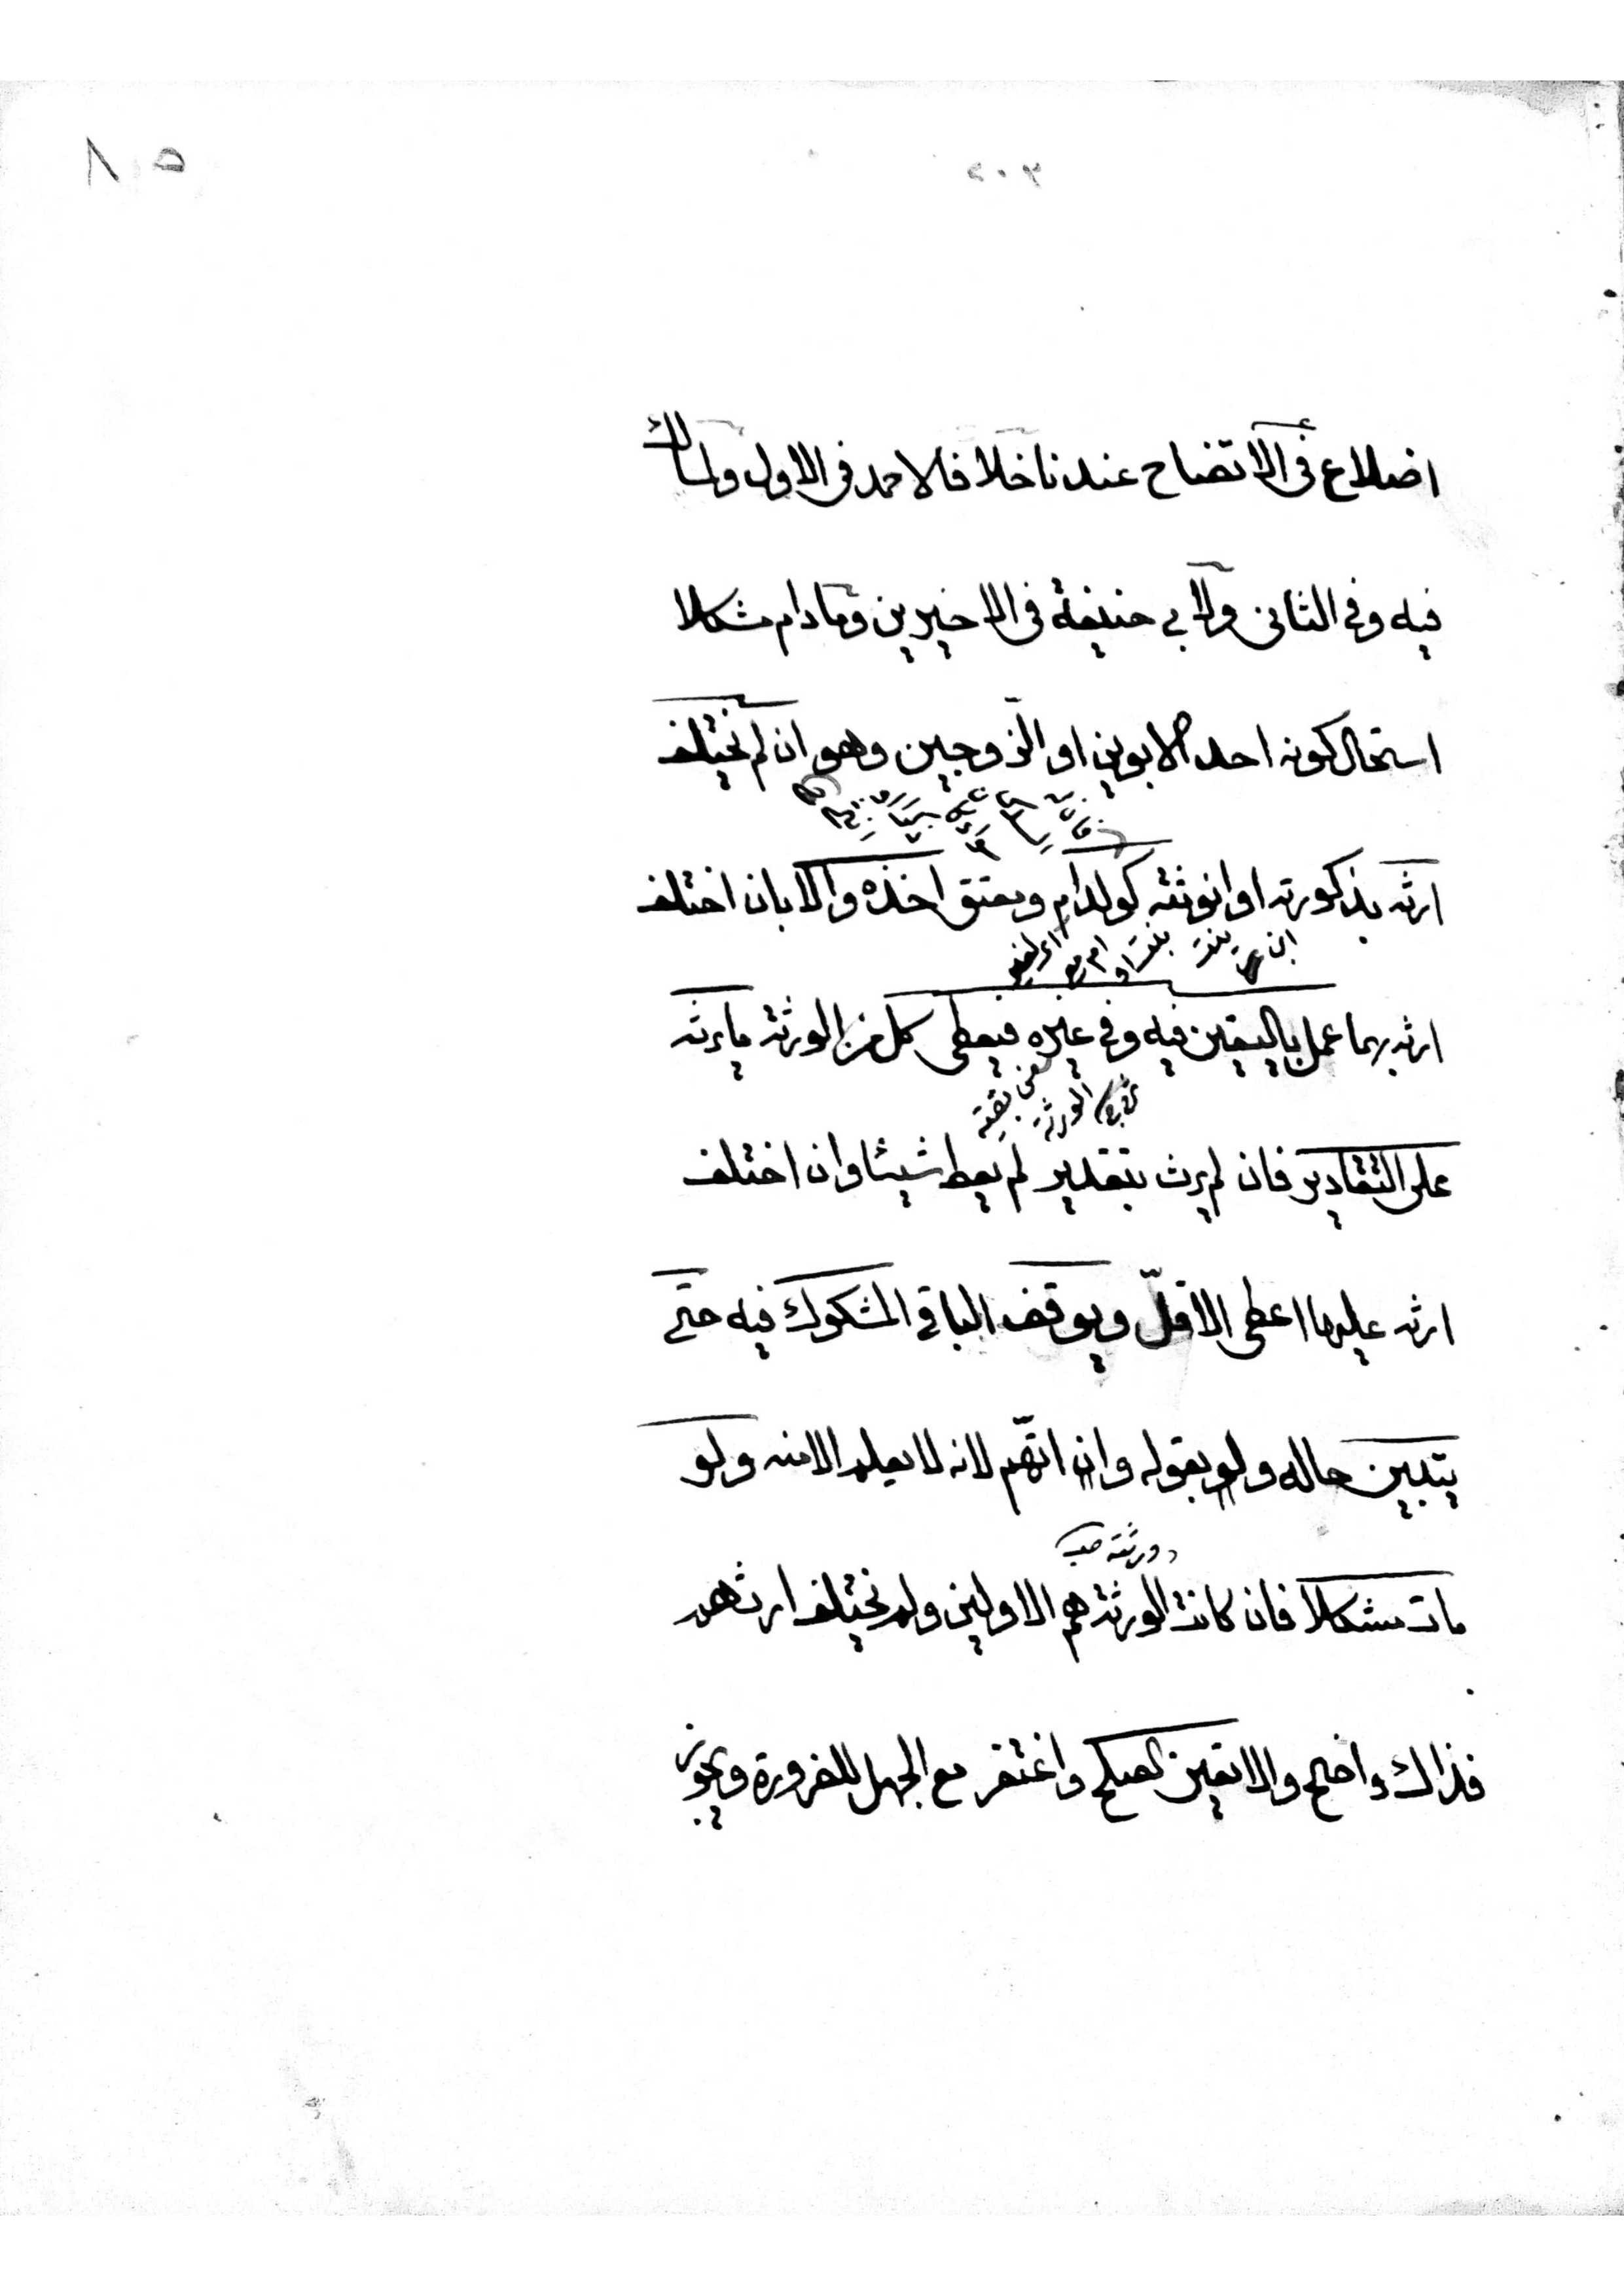 ٨٥
٢٠٣
اضلاع فى الاتضاح عندنا خلافا لاحمد فى الاول ولمالك
فيه وفى الثانى ولابى حنيفة فى الاخيرين ومادام مشكلا
استحال كونه احد الابوين او الزوجين وهو ان لم يختلف
ارثه بذكورته او انوثته كولد ام ومعتق اخذه والا بان اختلف
ارثه بهما عمل باليقين فيه وفى غيره فيعطى كل من الورثة ما يرثه
الورثة بقية
على التقادير فان لم يرث بتقدير لم يعط شيئا وان اختلف
ارثه عليها اعطى الاقلّ ويوقف الباقى المشكوك فيه حتى
يتبين حاله ولو بقوله وان اتّهم لانه لا يعلم الا منه ولو
ورثته
مات مشكلا فان كانت الورثة هم الاولين ولم يختلف ارثهم
فذاك واضح والا تعين الصلح واغتفر مع الجهل للضرورة ويجوز